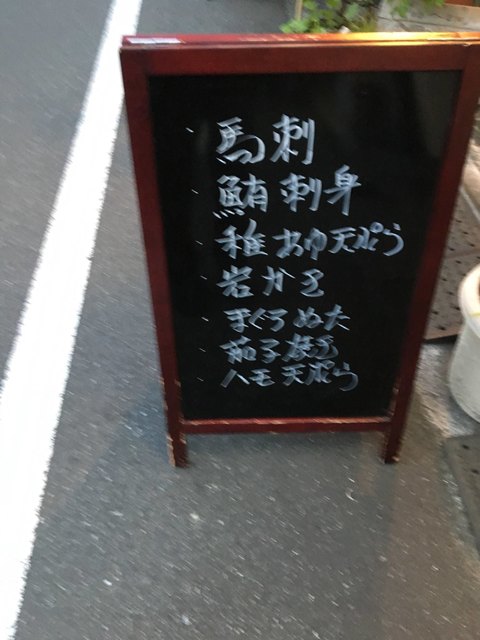 馬刺
鮪刺身
稚あゆ天ぷら
岩かき
まぐろぬた
茄子
ハモ天ぷら